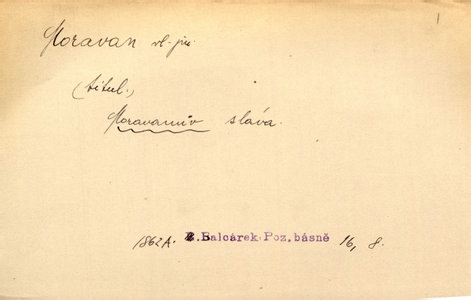 1
Moravan vl-jm.
(titul.)
Moravanův sláva.
1862A. B. Balcárek Poz. básně 16, 8.